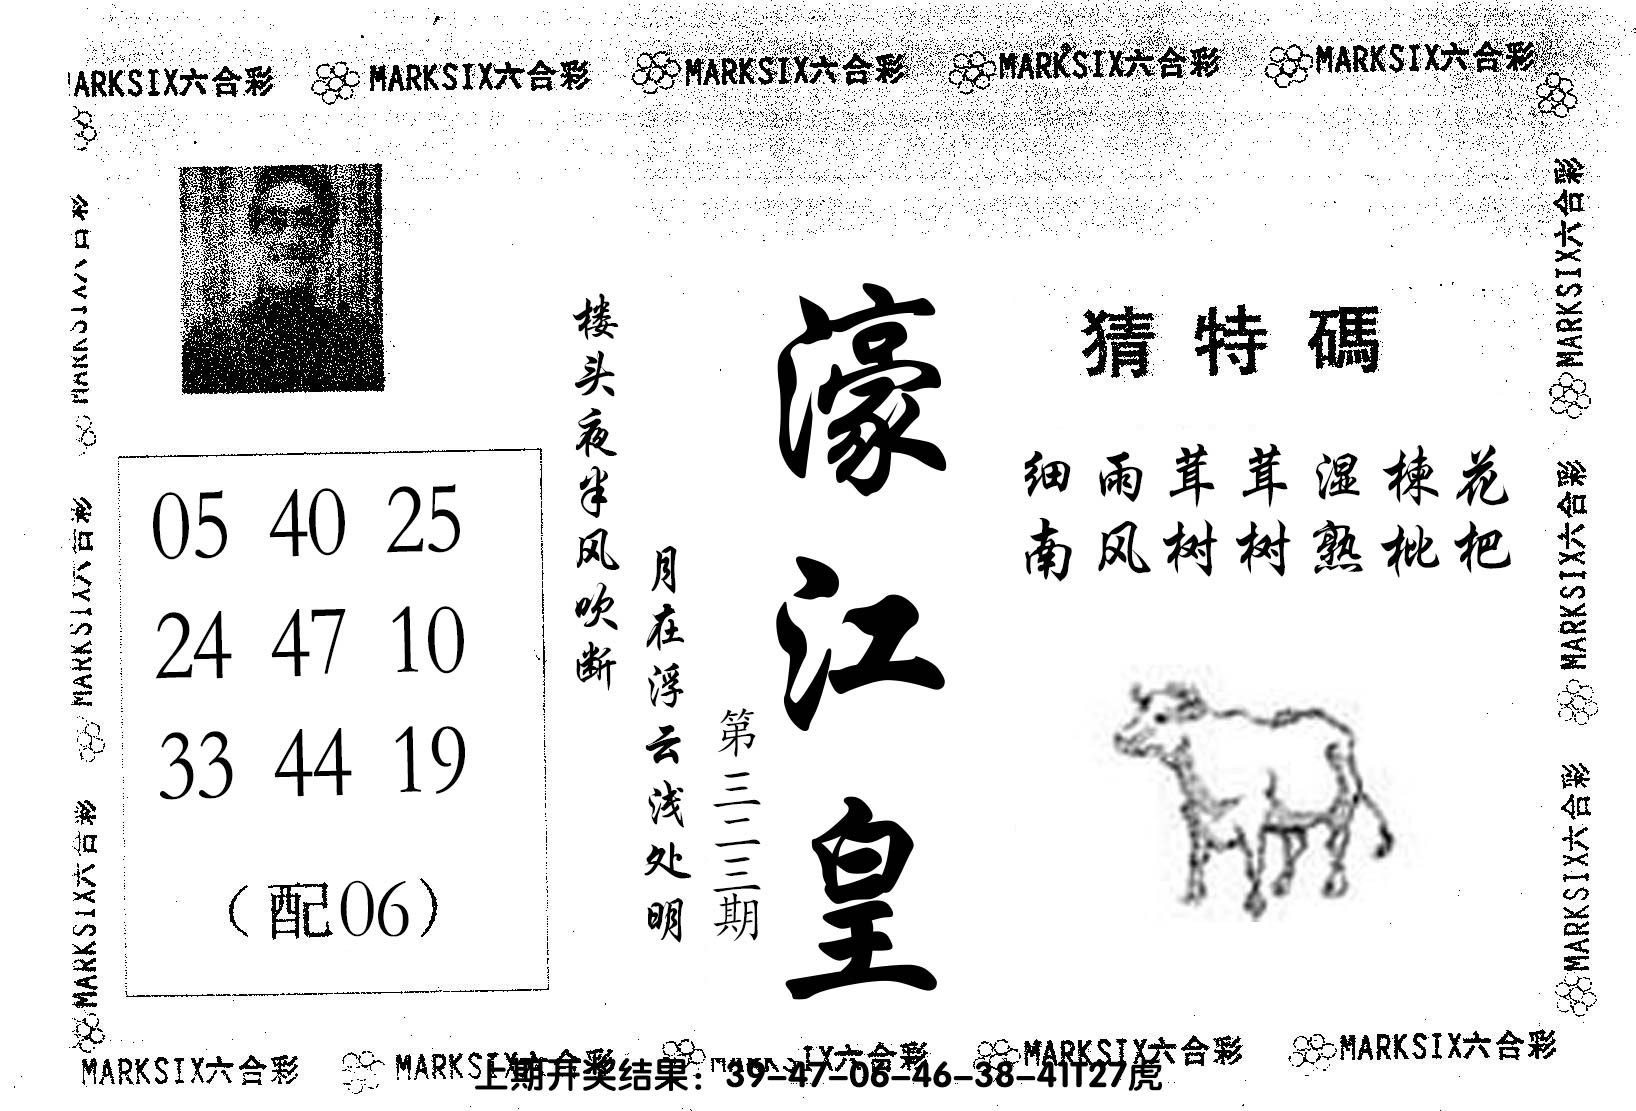 MARKSIX六合彩 MARKSIX六合彩 MARKSIX六合彩 MARKSIX六合彩 MARKSIX六合彩
MARKSIX六合彩
MARKSIX六合彩
MARKSIX六合彩
猜特碼
细雨茸茸湿楝花
南风树树熟枇杷
濠江皇
第三二三期
楼头夜半风吹断
月在浮云浅处明
05 40 25
24 47 10
33 44 19
（配06）
MARKSIX六合彩
MARKSIX六合彩
MARKSIX六合彩
MARKSIX六合彩 MARKSIX六合彩 IX六合彩 MARKSIX六合彩 MARKSIX六合彩
上期开奖结果：39-47-06-46-38-41T27虎